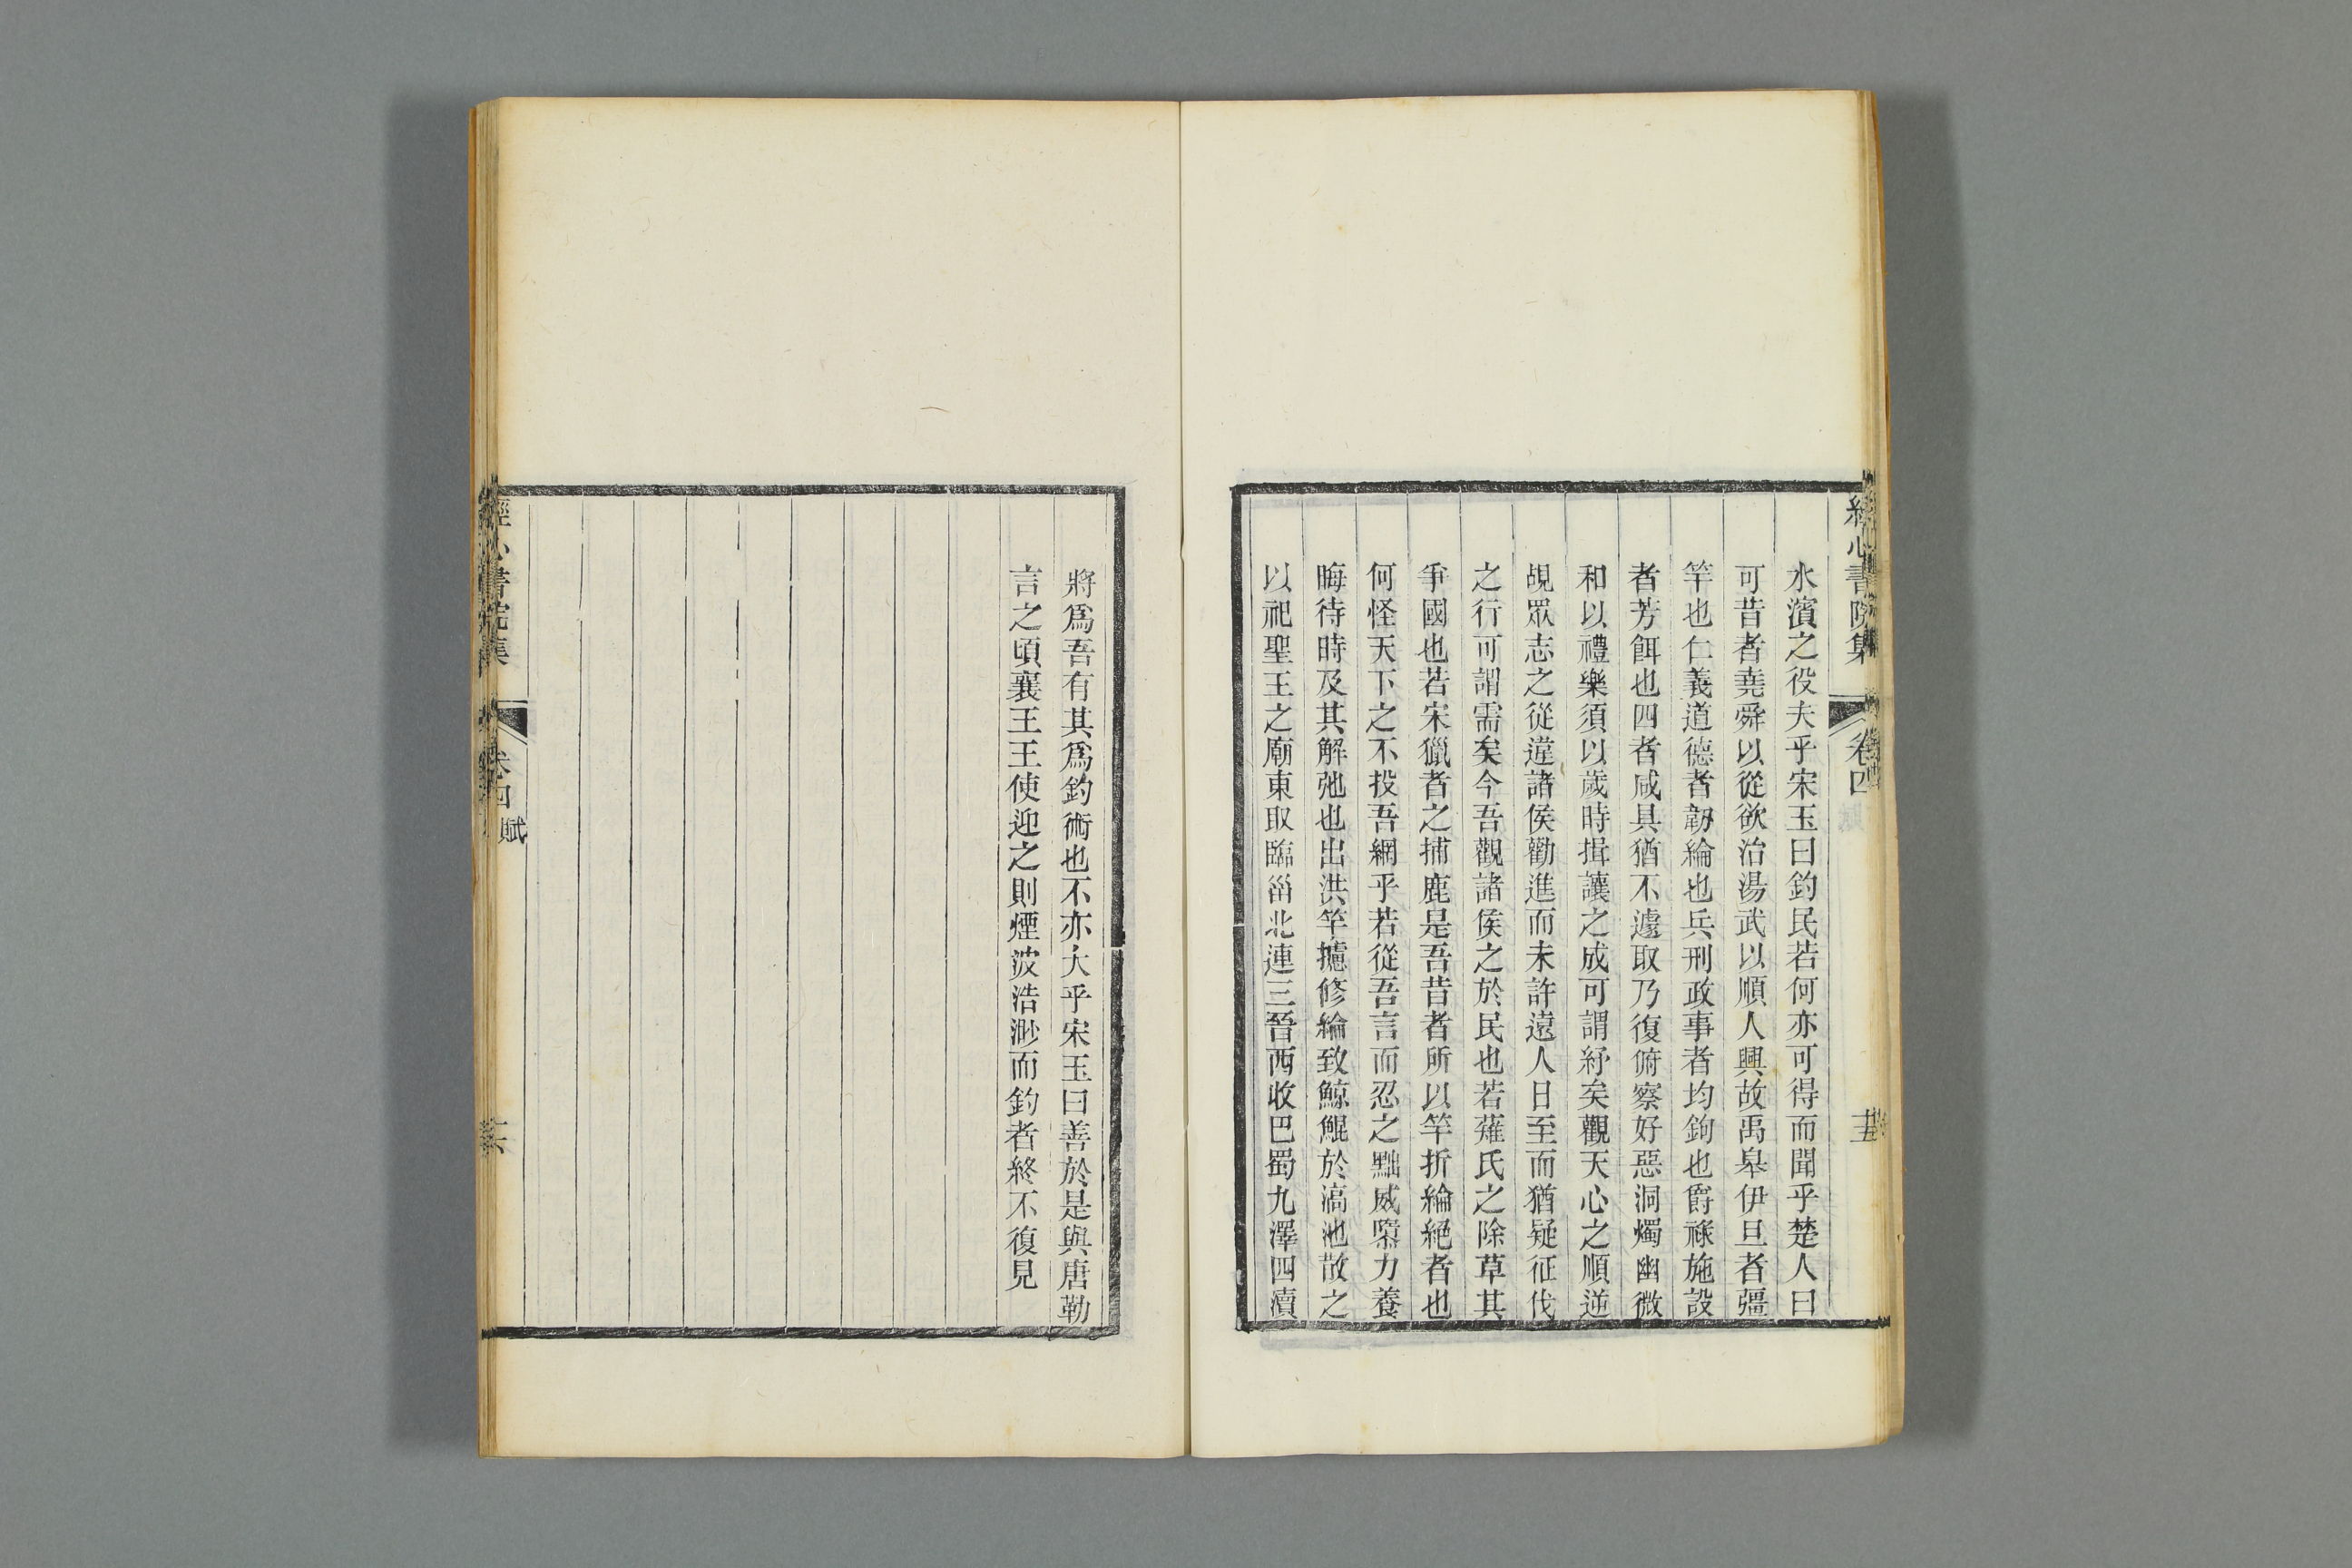 經心書院集
卷四
十五
水濱之役夫乎宋玉曰釣民若何亦可得而聞乎楚人曰
可昔者堯舜以從欲治湯武以順人興故禹皋伊旦者彊
竿也仁義道德者韌綸也兵刑政事者均鉤也爵祿施設
者芳餌也四者咸具猶不遽取乃復俯察好惡洞燭幽微
和以禮樂須以歲時揖讓之成可謂紓矣觀天心之順逆
覘眾志之從違諸侯勸進而未許遠人日至而猶疑征伐
之行可謂需矣今吾觀諸侯之於民也若薙氏之除草其
爭國也若宋獵者之捕鹿是吾昔者所以竿折綸絕者也
何怪天下之不投吾網乎若從吾言而忍之黜威隳力養
晦待時及其解弛也出洪竿攄修綸致鯨鯤於滈池散之
以祀聖王之廟東取臨甾北連三晉西收巴蜀九澤四瀆
將爲吾有其爲釣術也不亦大乎宋玉曰善於是與唐勒
言之頃襄王王使迎之則煙波浩渺而釣者終不復見
經心書院集
卷四 賦
十六